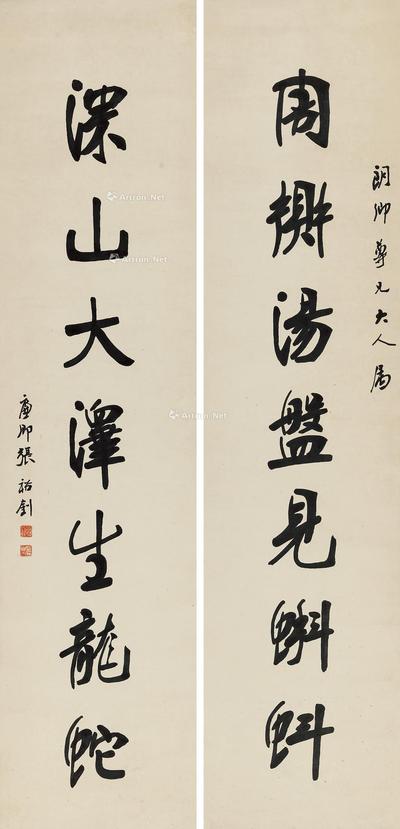 朗卿尊兄大人屬
周湯盤見蝌蚪
深山大澤生龍蛇
廉卿張裕釗
Artron.Net
Artron.Net
Artron.Net